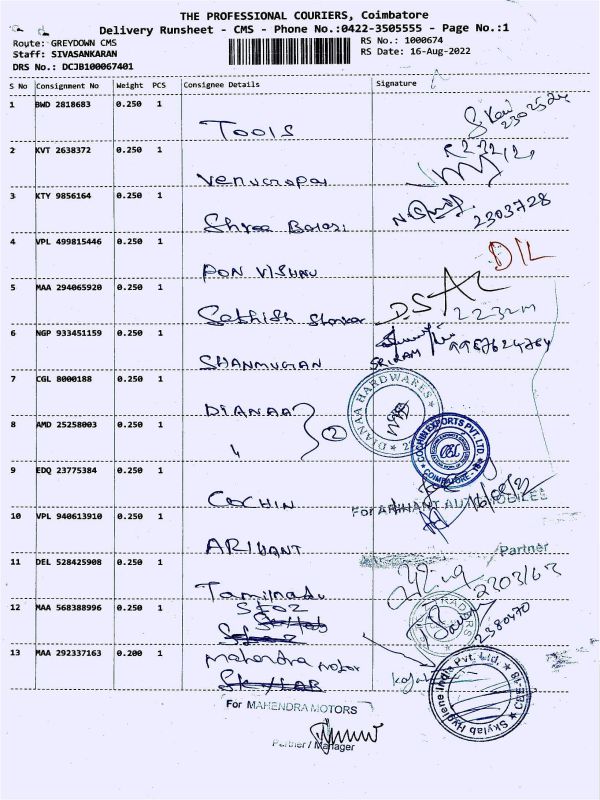 THE PROFESSIONAL COURIERS, Coimbatore
Delivery Runsheet - CMS - Phone No.:0422-3505555 - Page No.:1
Route: GREYDOWN CMS RS No.: 1000674
Staff: SIVASANKARAN RS Date: 16-Aug-2022
DRS No.: DCJB100067401
S No Consignment No Weight PCS Consignee Details Signature
1 BWD 2818683 0.250 1
TOOLS
2 KVT 2638372 0.250 1
Venucropal
3 KTY 9856164 0.250 1
Shree Balaji 2303728
4 VPL 499815446 0.250 1
PON VISHNU DIL
5 MAA 294065920 0.250 1
Sathish
6 NGP 933451159 0.250 1
SHANMUGAN SRIRAM 9987624784
7 CGL 8000188 0.250 1
DIANAA 2 DIANAA HARDWARES
8 AMD 25258003 0.250 1
COCHIN EXPORTS PVT. LTD. COIMBATORE
9 EDQ 23775384 0.250 1
COCHIN 16/08/22
For ARIHANT AUTOMOBILES
10 VPL 940613910 0.250 1
ARIHANT Partner
11 DEL 528425908 0.250 1
Tamilnadu 2303163
12 MAA 568388996 0.250 1
2380470
TRADERS
13 MAA 292337163 0.200 1
Mahendra Motor
SKYLAB
Skylab Hygiene India Pvt. Ltd. CBE-18
For MAHENDRA MOTORS
Partner / Manager